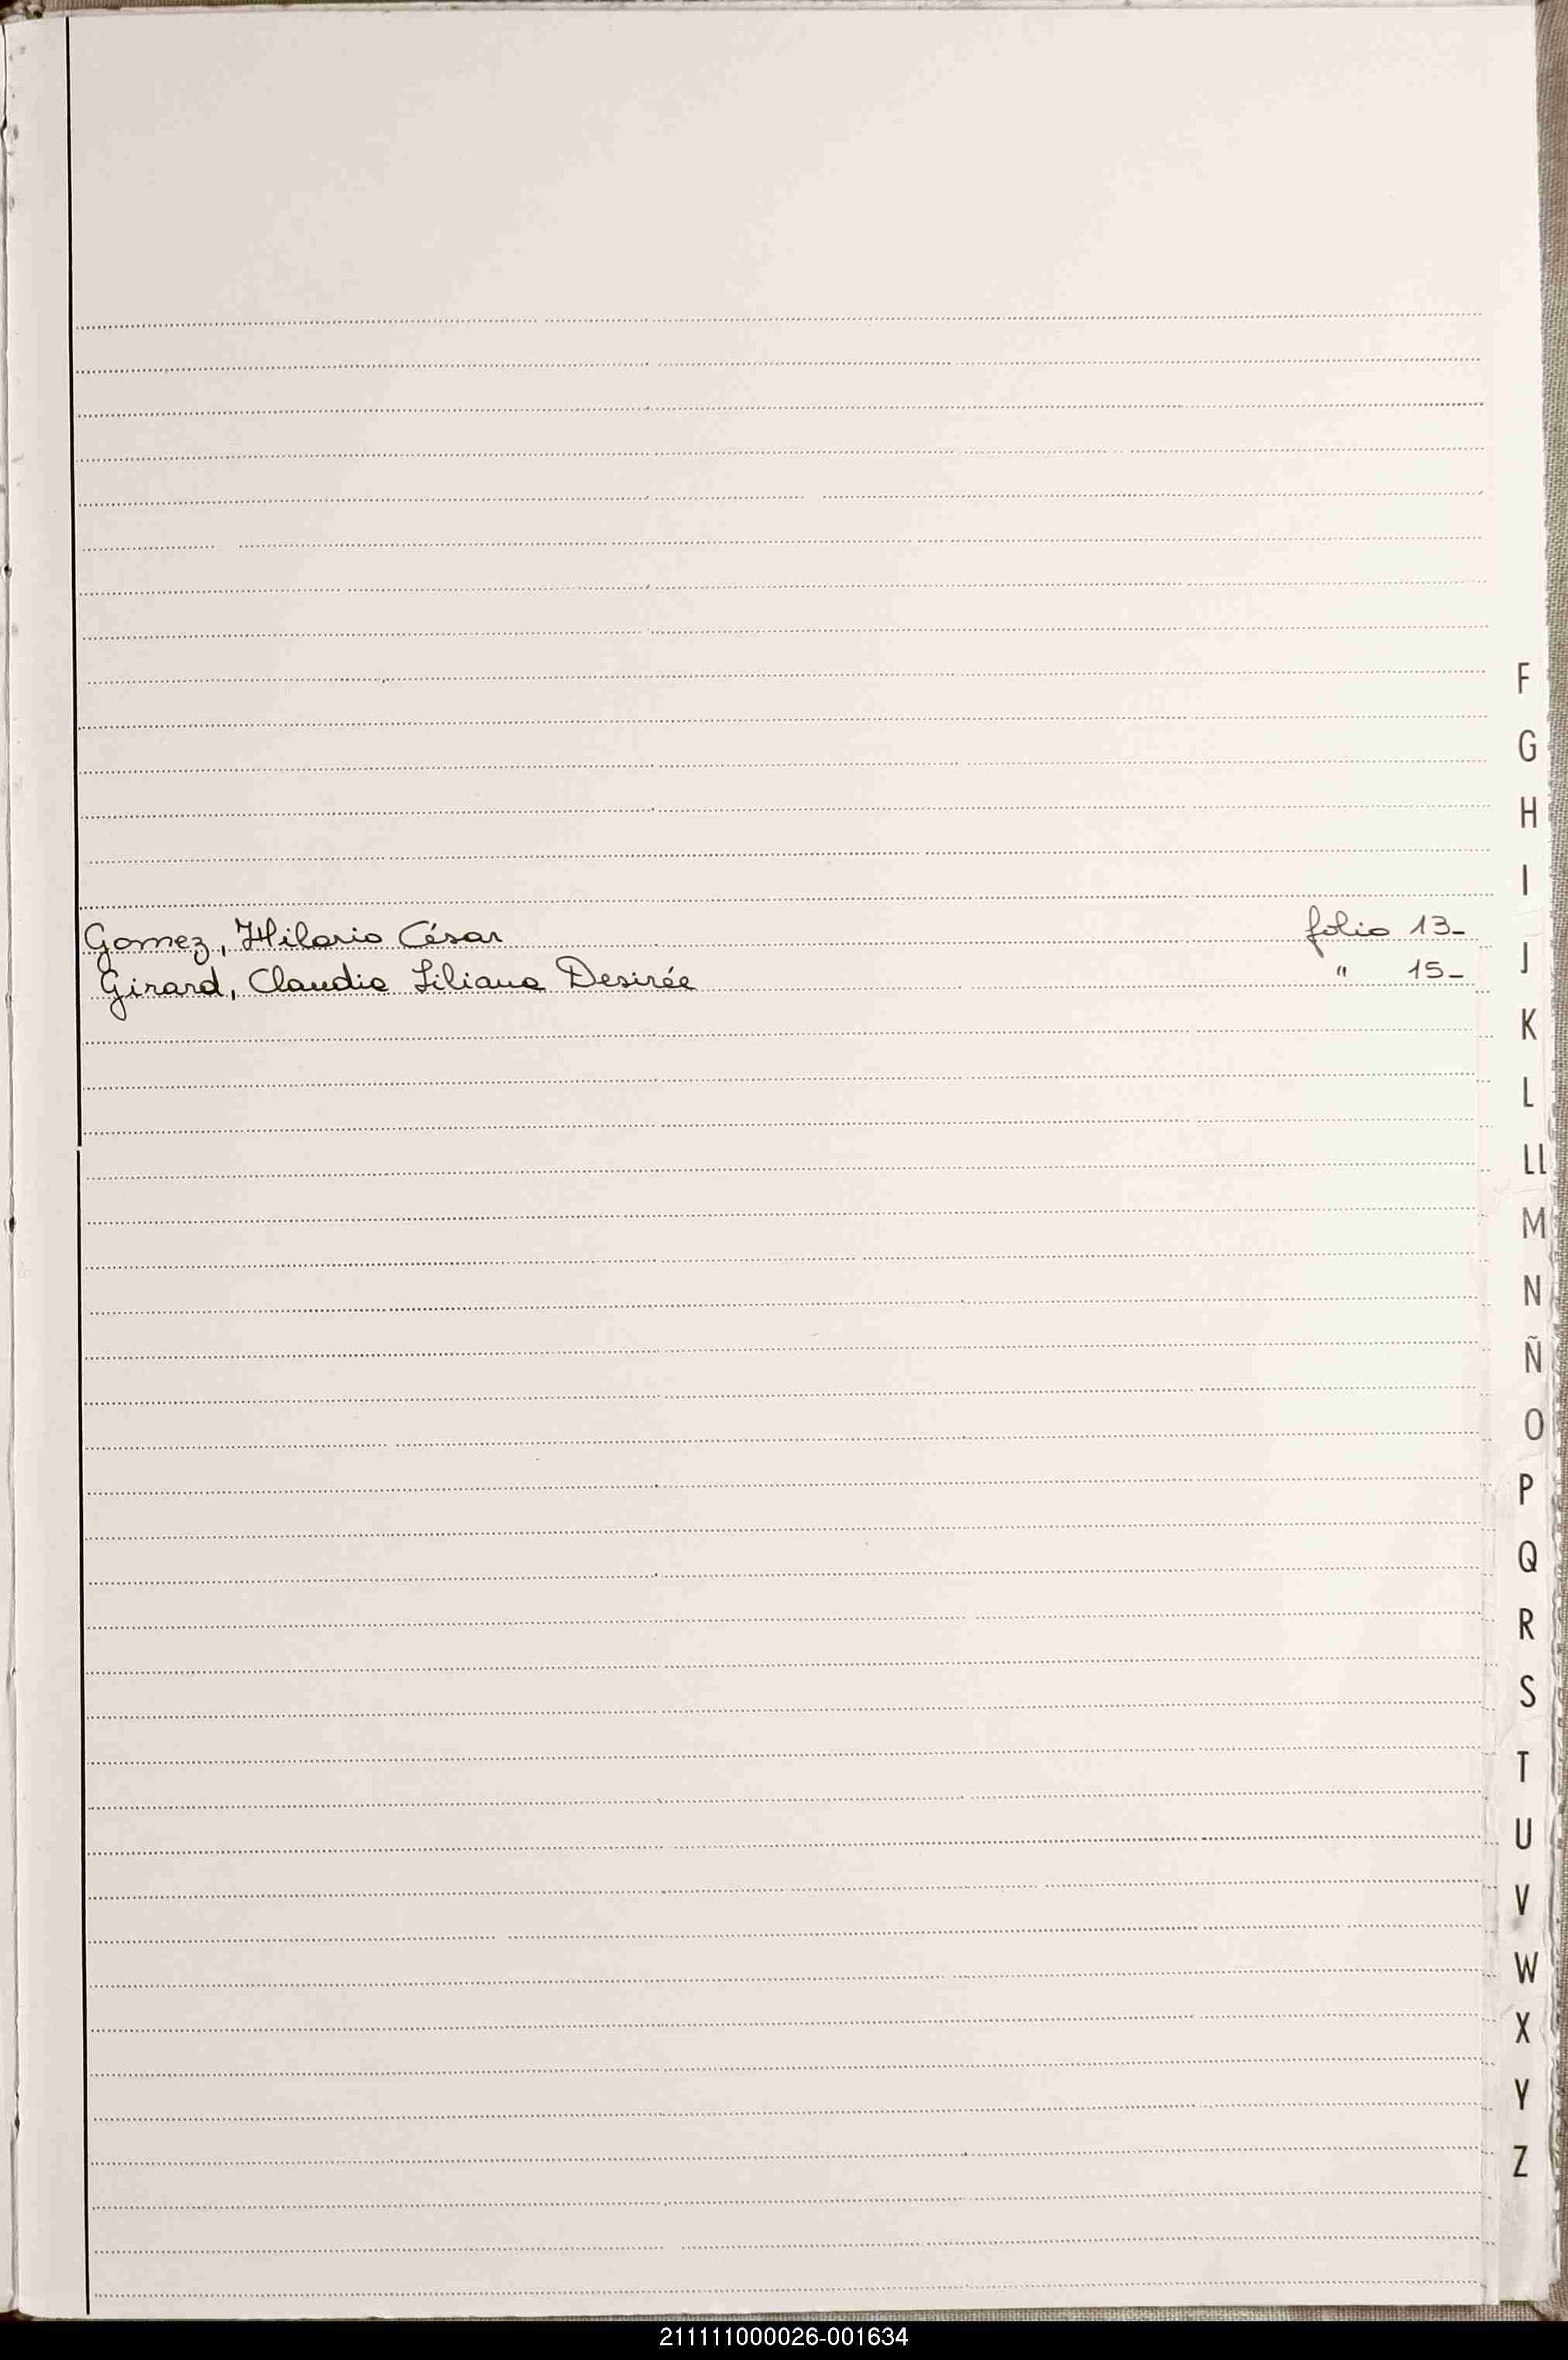 F
G
H
I
Gomez, Hilario César folio 13-
J
Girard, Claudia Liliana Desirée " 15-
K
L
LL
M
N
Ñ
O
P
Q
R
S
T
U
V
W
X
Y
Z
211111000026-001634